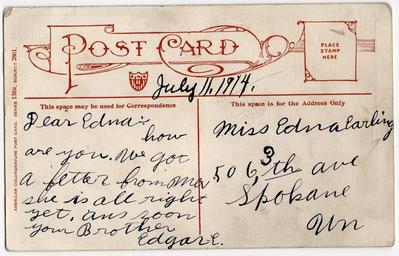 POST CARD
PLACE
STAMP
HERE
July 11, 1914.
This space may be used for Correspondence
Dear Edna:
how
are you. We got
a letter from
she is all right
yet. ans soon
your Brother
Edgar E.
This space is for the Address Only
Miss Edna Earling
506, 3 th ave
Spokane
Wn
AMERICAN COLORGRAVURE POST CARD. SERIES SUBJECT 2861.